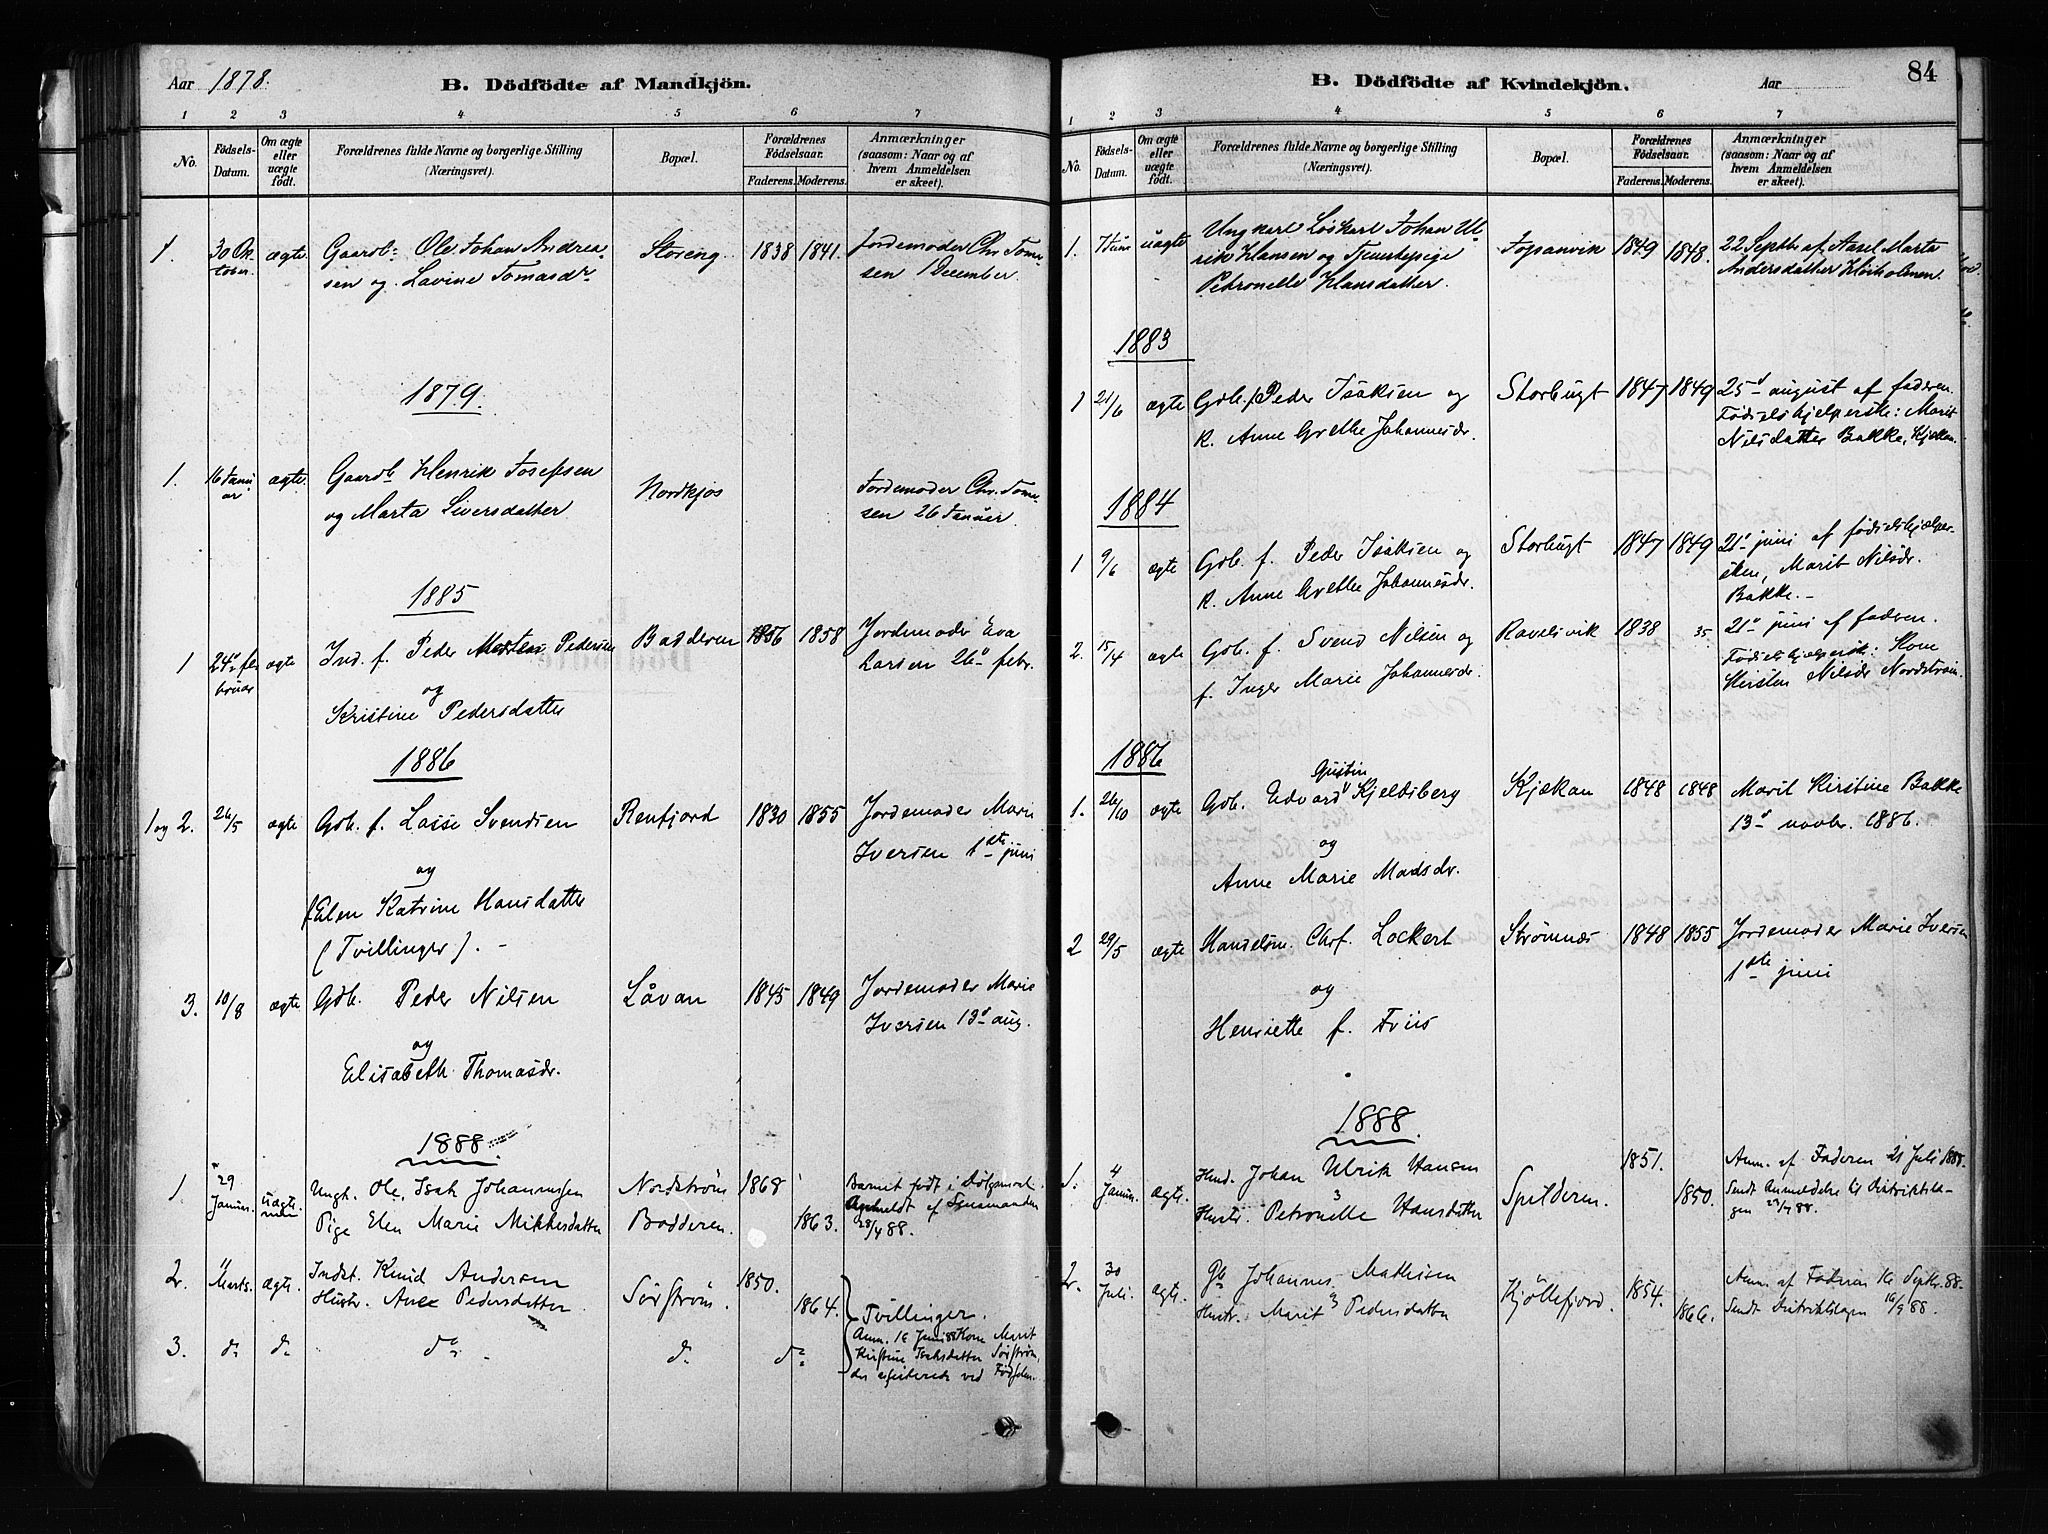 Aar 1878.
B. Dödfödte af Mandkjön.
1 2 3 4 5 6 7
No. Fødsels-Datum. Om ægte eller uægte født. Forældrenes fulde Navne og borgerlige Stilling (Næringsvei). Bopæl. Forældrenes Fødselsaar. Faderens. Moderens. Anmærkninger (saasom: Naar og af hvem Anmeldelsen er skeet).
1. 30 Ok- ægte Gaardb: Ole Johan Andrea- Storeng 1838 1841. Jordemoder Chr. Tome-
tober sen og Lavine Tomasdr sen 1 December.
1879.
1. 16 Janu- ægte. Gaardb Henrik Josefsen Nordkjos Jordemoder Chr. Tome-
ar og Marta Siversdatter sen 26 Januar.
1885
1 24d fe- ægte Ind. f. Peder Morten Pedersen Badderen 1856 1858 Jordemoder Eva
bruar og Larsen 26d febr.
Kristine Pedersdatter
1886
1 og 2. 26/5 ægte Gdb. f. Lasse Svendsen Renfjord 1830 1855 Jordemoder Marie
og Iversen 1ste juni
f Elen Katrine Hansdatter
(Tvillinger). -
3. 10/8 ægte Gdb. Peder Nilsen Låvan 1845 1849 Jordemoder Marie
og Iversen 13d aug.
Elisabeth Thomasdr.
1888
1 29 Januar. uægte Ungk. Ole Isak Johannessen Nordstrøm 1868 Barnet født i
Pige Elen Marie Mikkelsdatter Badderen. 1863. Anmeldt af
28/4 88.
2. 11 Marts. ægte. Indst. Knud Andersen Sørstrøm 1850.
Hustr. Ane Pedersdatter 1864. Tvillinger.
3. do do do do do Anm. 16 Juni 88 Kone Marit
Kirstine Isaksdatter Sørstrøm,
der assisterede ved Fødselen.
B. Dödfödte af Kvindekjön.
Aar
84
1 2 3 4 5 6 7
No. Fødsels-Datum. Om ægte eller uægte født. Forældrenes fulde Navne og borgerlige Stilling (Næringsvei). Bopæl. Forældrenes Fødselsaar. Faderens. Moderens. Anmærkninger (saasom: Naar og af hvem Anmeldelsen er skeet).
1. 7 Juni uægte Ungkarl Løskarl Johan Ul- Tøpsanvik 1849 1848. 22 Septb. af Aasel Marta
rik Hansen og Tjenestepige Andersdatter
Petronelle Hansdatter.
1883
1 21/6 ægte Gdb. f Peder Isaksen og Storbugt 1847 1849 25d august af faderen.
k. Anne Grethe Johannesdr. Fødselshjelperske: Marit
Nilsdatter Bakke, Kjækan.
1884
1 9/6 ægte Gdb. f. Peder Isaksen og Storbugt 1847 1849 21d juni af fødselshjelper-
k. Anne Grethe Johannesdr. sken, Marit Nilsdr.
Bakke. -
2. 15/4 ægte Gdb. f. Svend Nilsen og Ravelsvik 1838 35 21d juni af faderen.
f. Inger Marie Johannesdr. Fødselshjelperske: Kone
Kirsten Nilsdr Nordstrøm.
1886
1. 26/10 ægte Gdb. Edvard Gustin Kjeldsberg Kjækan 1848 1848 Marit Kirstine Bakke
og 13d novbr. 1886.
Anne Marie Madsdr.
2 29/5 ægte Handelsm. Chrf. Lockert Strømnæs 1848 1855 Jordemoder Marie Iversen
og 1ste juni
Henriette f. Friis
1888.
1. 4 Januar ægte. Husd. Johan Ulrik Hansen Spilderen. 1851. Anm. af Faderen 21 Juli 1888.
Hustr. Petronelle Hansdatter 1850. Sendt Anmeldelse til Distriktslæ-
gen 23/7 88.
2. 30 Juli. ægte. Gb Johannes Mathisen Kjöllefjord. 1854. Anm. af Faderen 16 Septbr. 88.
Hustr. Marit Pedersdatter 1866. Sendt Distriktslægen 16/9 88.